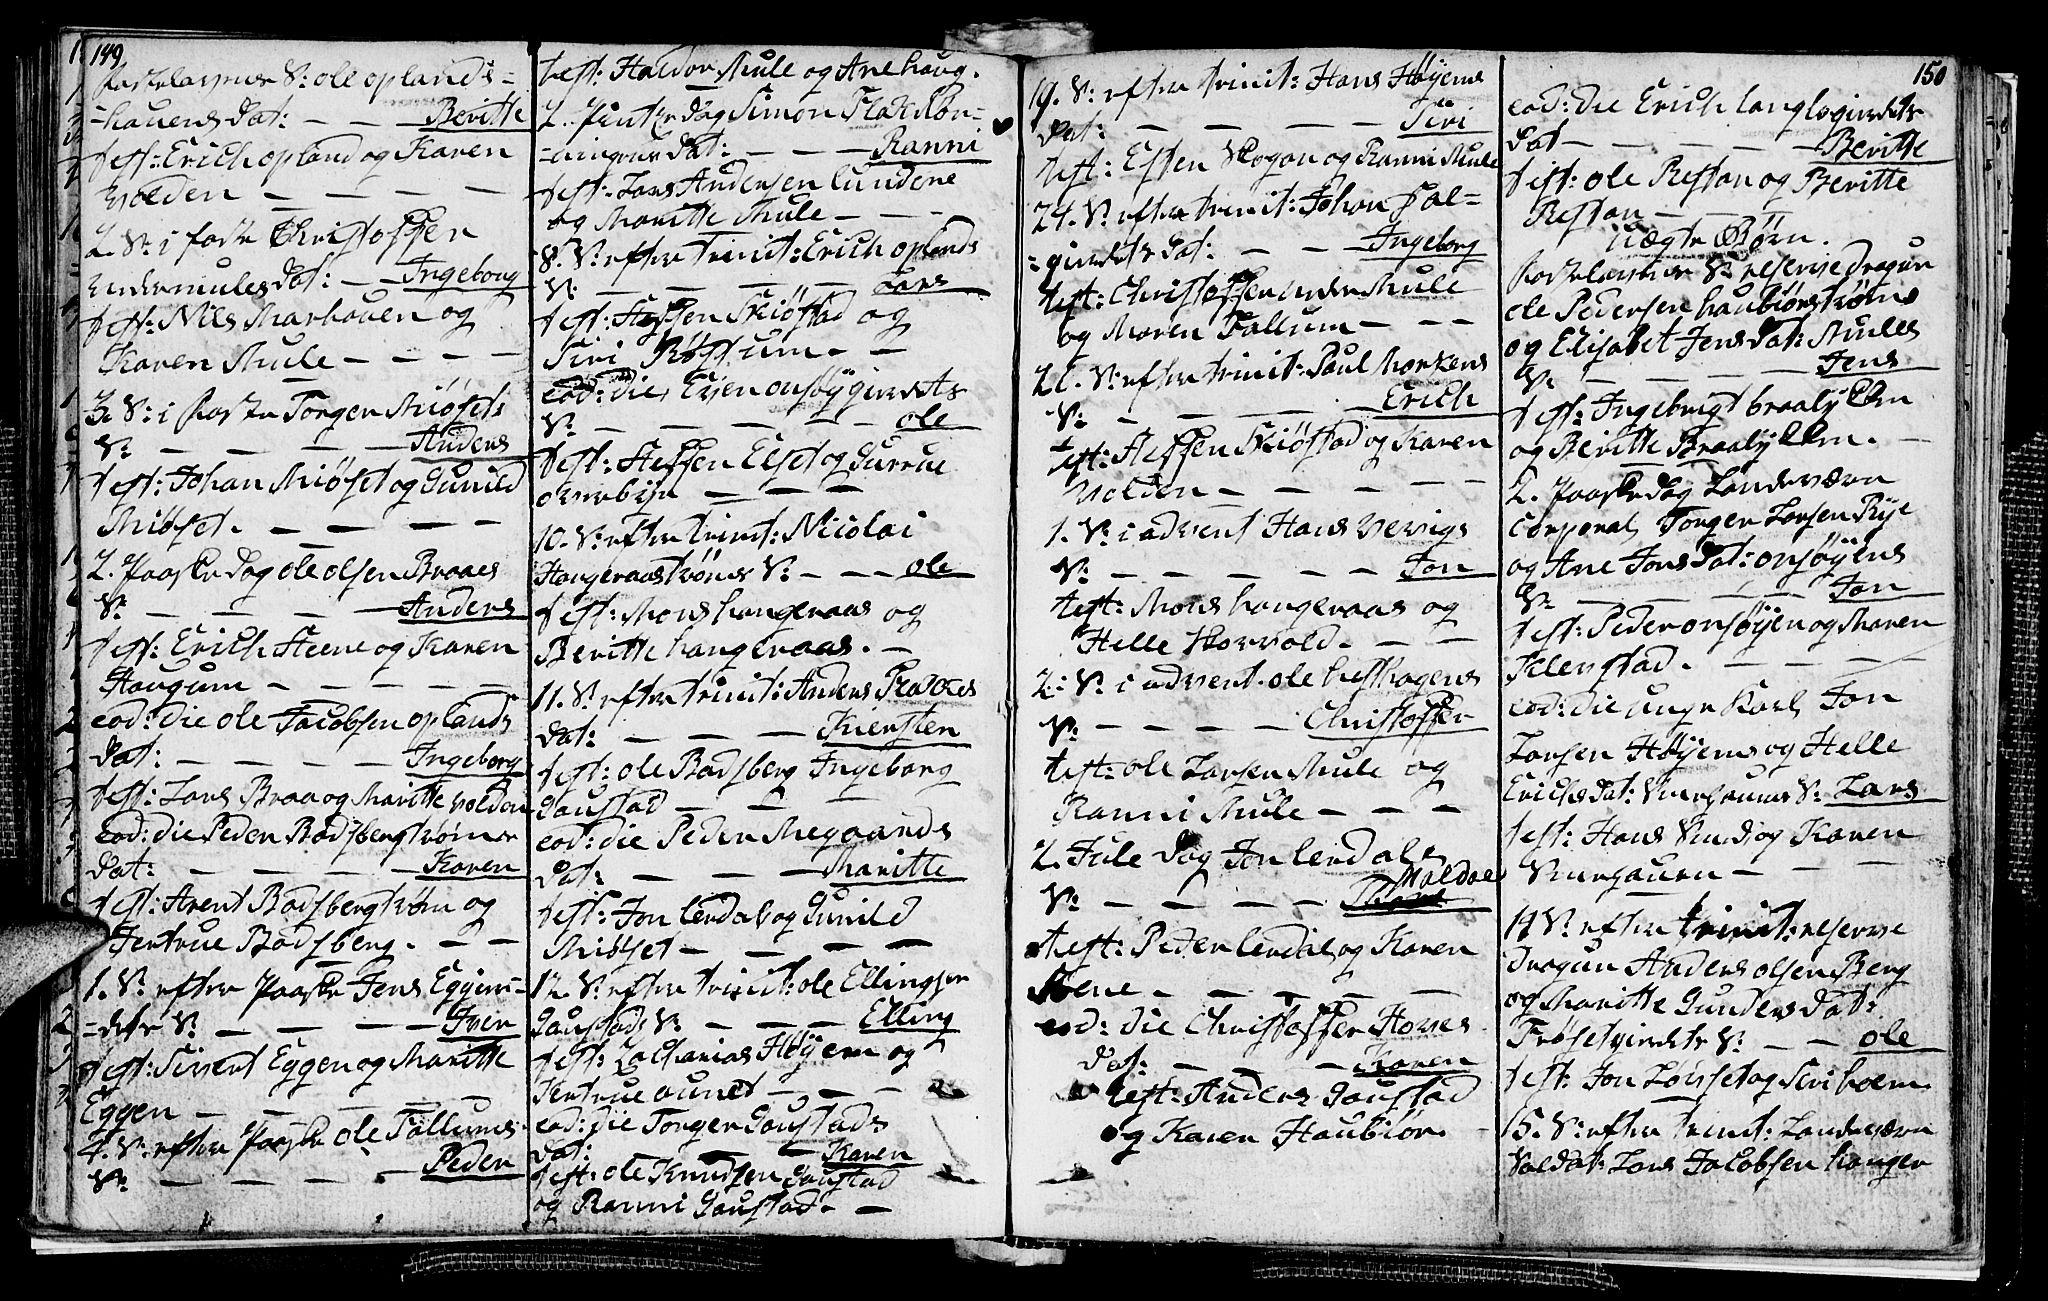 149
Fastelavns S: ole oplands=
=hauens Dat: — — Beritte
test: Erich opland og Karen
Volden — — — —
2. S: i faste Christoffer
undermules Dat: — — Ingeborg
test: Nils Marhauen og
Karen Mule — — — —
3. S: i Faste Torger Miøsets
S: — — — — Anders
test: Johan Miøset og Gunild
Miøset. — — — —
2. Paaske Dag ole olsen Braaes
S: — — — — Anders
test: Erich Steene og Karen
Haugum — — — — —
eod: die ole Jacobsen oplands
Dat: — — — — Ingeborg
test: Lars Braa og Maritte volden
eod: die Peder Badsbergtrøens
Dat: — — — — Karen
test: Arent Badsbergtrøen og
Jertrue Badsberg. — —
1. S: efter Paaske Jens Eggens=
S: — — — — Iver
test: Sivert Eggen og Maritte
Eggen — — — — —
4. S: efter Paaske ole Fallums
S: — — — — Peder
test: Haldor Mule og Ane haug.
2. Pintze Dag Simon
Dat: — — — Ranni
test: Lars Andersen lundene
og Maritte Mule — — —
8. S: efter trinit: Erich oplands
S: — — — — Lars
test: Steffen Skiøstad og
Siri Røstum — —
eod: die, Even onsøygierdets
S: — — — — — ole
test: Steffen Elset og Gurrue
overbye — — — —
10. S: efter trinit: Nicolai
Hangeraastrøens S: — — — ole
test: Mons hangeraas og
Beritte hangeraas. —
11. S: efter trinit: Anders
Dat: — — — Kiersten
test: ole Badsberg Ingeborg
Gaustad — — — —
eod: die Peder Megaards
Dat: — — — — Maritte
test: Jon lerdal og Gunild
Miøset — — — —
12. S: efter trinit: ole Ellingsen
Gaustads S: — — — Elling
test: Zacharias Høyem og
Jertrue aunet — — —
eod: die Torger Gaustads
Dat: — — — Karen
test: ole Knudsen Gaustad
og Ranni Gaustad. —
19. S: efter trinit: Hans Høyems
Dat: — — — — Siri
test: Esten Skogan og Ranni Mule
24. S: efter trinit: Johan Sal=
=gierdets Dat: — — Ingeborg
test: Christoffer under Mule
og Maren Fallum — — —
S: efter trinit: Paul Morkens
S: — — — — Erich
test: Steffen Skiøstad og Karen
Volden — — — — —
1. S: i advent Hans Vevigs
S: — — — — — Jon
test: Mons hangeraas og
Helle Skorvold. — — —
2: S: i advent ole hesthagens
S: — — — — Christoffer
test: ole Larsen Mule og
Ranni Mule — — —
2. Jule Dag Jon lerdals
Moldae
S: — — — —
test: Peder lerdal og Karen
Stene — — — — —
eod: die Christoffer Hoves
Dat: — — — Karen
test: Anders Gaustad
og Karen Haubiør. —
150
eod: die Erich langlogierdets
Dat — — — — Beritte
test: ole Restan og Beritte
Restan — — —
Uægte Børn.
Fastelavns S: reserve dragun
ole Pedersen haubiørstrøens
og Elisabet Jens Dat: Mules
S: — — — — Jens
test: Ingebrigt Braalykken
og Beritte Braalykken. —
2. Paaske Dag Landeværn
Corporal Torger Larsen Rye
og Ane Jons Dat: onsøyens
S: — — — — — Jon
test: Peder onsøyen og Maren
Fillerstad. — — — —
eod: die unge Karl Jon
Larsen Høyems og Helle
Erichs Dat: S: Lars
test: Hans og Karen
— —
14 S: efter trinit: reserve
Dragun Anders olsen Berg
og Maritte Gunders Dat:
Frøsetgierdets S: — — ole
test: Jon og Siri
15. S: efter trinit: Landeværn
Soldat Lars Jacobsen hanger